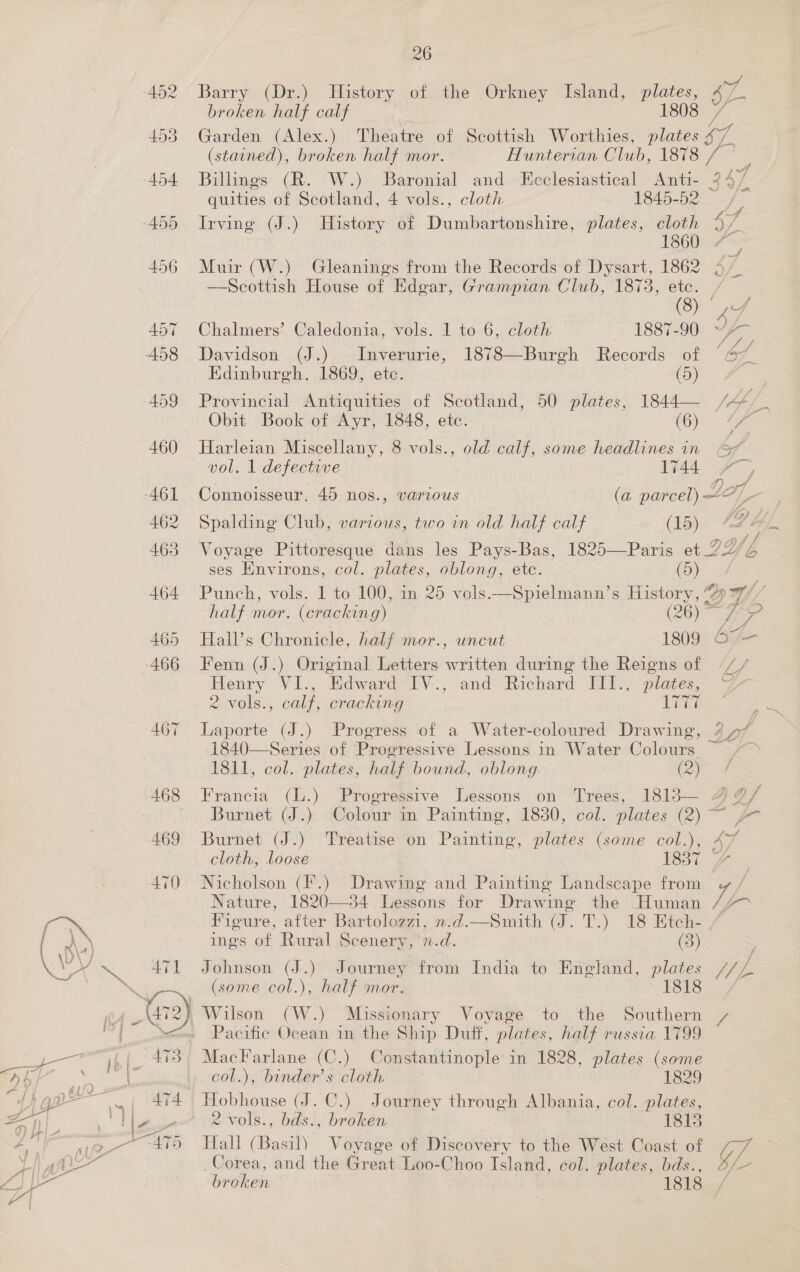 26
452 Barry (Dr.) History of the Orkney Island, plates,
broken half calf 1808
453 Garden (Alex.) Theatre of Scottish Worthies, plates
(stained), broken half mor. Hunterian Club, 1878
454 Billings (R. W.) Baronial and Ecclesiastical Anti-
quities of Scotland, 4 vols., cloth 1845-52
455 Irving (J.) History of Dumbartonshire, plates, cloth
1860
456 Muir (W.) Gleanings from the Records of Dysart, 1862
—Scottish House of Edgar, Grampian Club, 1873, etc.
(8)
457 Chalmers' Caledonia, vols. 1 to 6, cloth 1887-90
458 Davidson (J.) Inverurie, 1878—Burgh Records of
Edinburgh. 1869, etc. (5)
459 Provincial Antiquities of Scotland, 50 plates, 1844—
Obit Book of Ayr, 1848, etc. (6)
460 Harleian Miscellany, 8 vols., old calf, some headlines in
vol. 1 defective 1744
461 Connoisseur, 45 nos., various (a parcel)
462 Spalding Club, various, two in old half calf (15)
463 Voyage Pittoresque dans les Pays-Bas, 1825—Paris et
ses Environs, col. plates, oblong, etc. (5)
464 Punch, vols. 1 to 100, in 25 vols.—Spielmann's History,
half mor. (cracking) (26)
465 Hall's Chronicle, half mor., uncut 1809
466 Fenn (J.) Original Letters written during the Reigns of
Henry VI., Edward IV., and Richard III., plates,
2 vols., calf, cracking 1777
467 Laporte (J.) Progress of a Water-coloured Drawing,
1840—Series of Progressive Lessons in Water Colours
1811, col. plates, half bound, oblong (2)
468 Francia (L.) Progressive Lessons on Trees, 1813—
Burnet (J.) Colour in Painting, 1830, col. plates (2)
469 Burnet (J.) Treatise on Painting, plates (some col.),
cloth, loose 1837
470 Nicholson (F.) Drawing and Painting Landscape from
Nature, 1820—34 Lessons for Drawing the Human
Figure, after Bartolozzi, n.d.—Smith (J. T.) 18 Etch-
ings of Rural Scenery, n.d. (3)
471 Johnson (J.) Journey from India to England, plates
(some col.), half mor. 1818
472 Wilson (W.) Missionary Voyage to the Southern
Pacific Ocean in the Ship Duff, plates, half russia 1799
473 MacFarlane (C.) Constantinople in 1828, plates (some
col.), binder's cloth 1829
474 Hobhouse (J. C.) Journey through Albania, col. plates,
2 vols., bds., broken 1813
475 Hall (Basil) Voyage of Discovery to the West Coast of
Corea, and the Great Loo-Choo Island, col. plates, bds.,
broken 1818